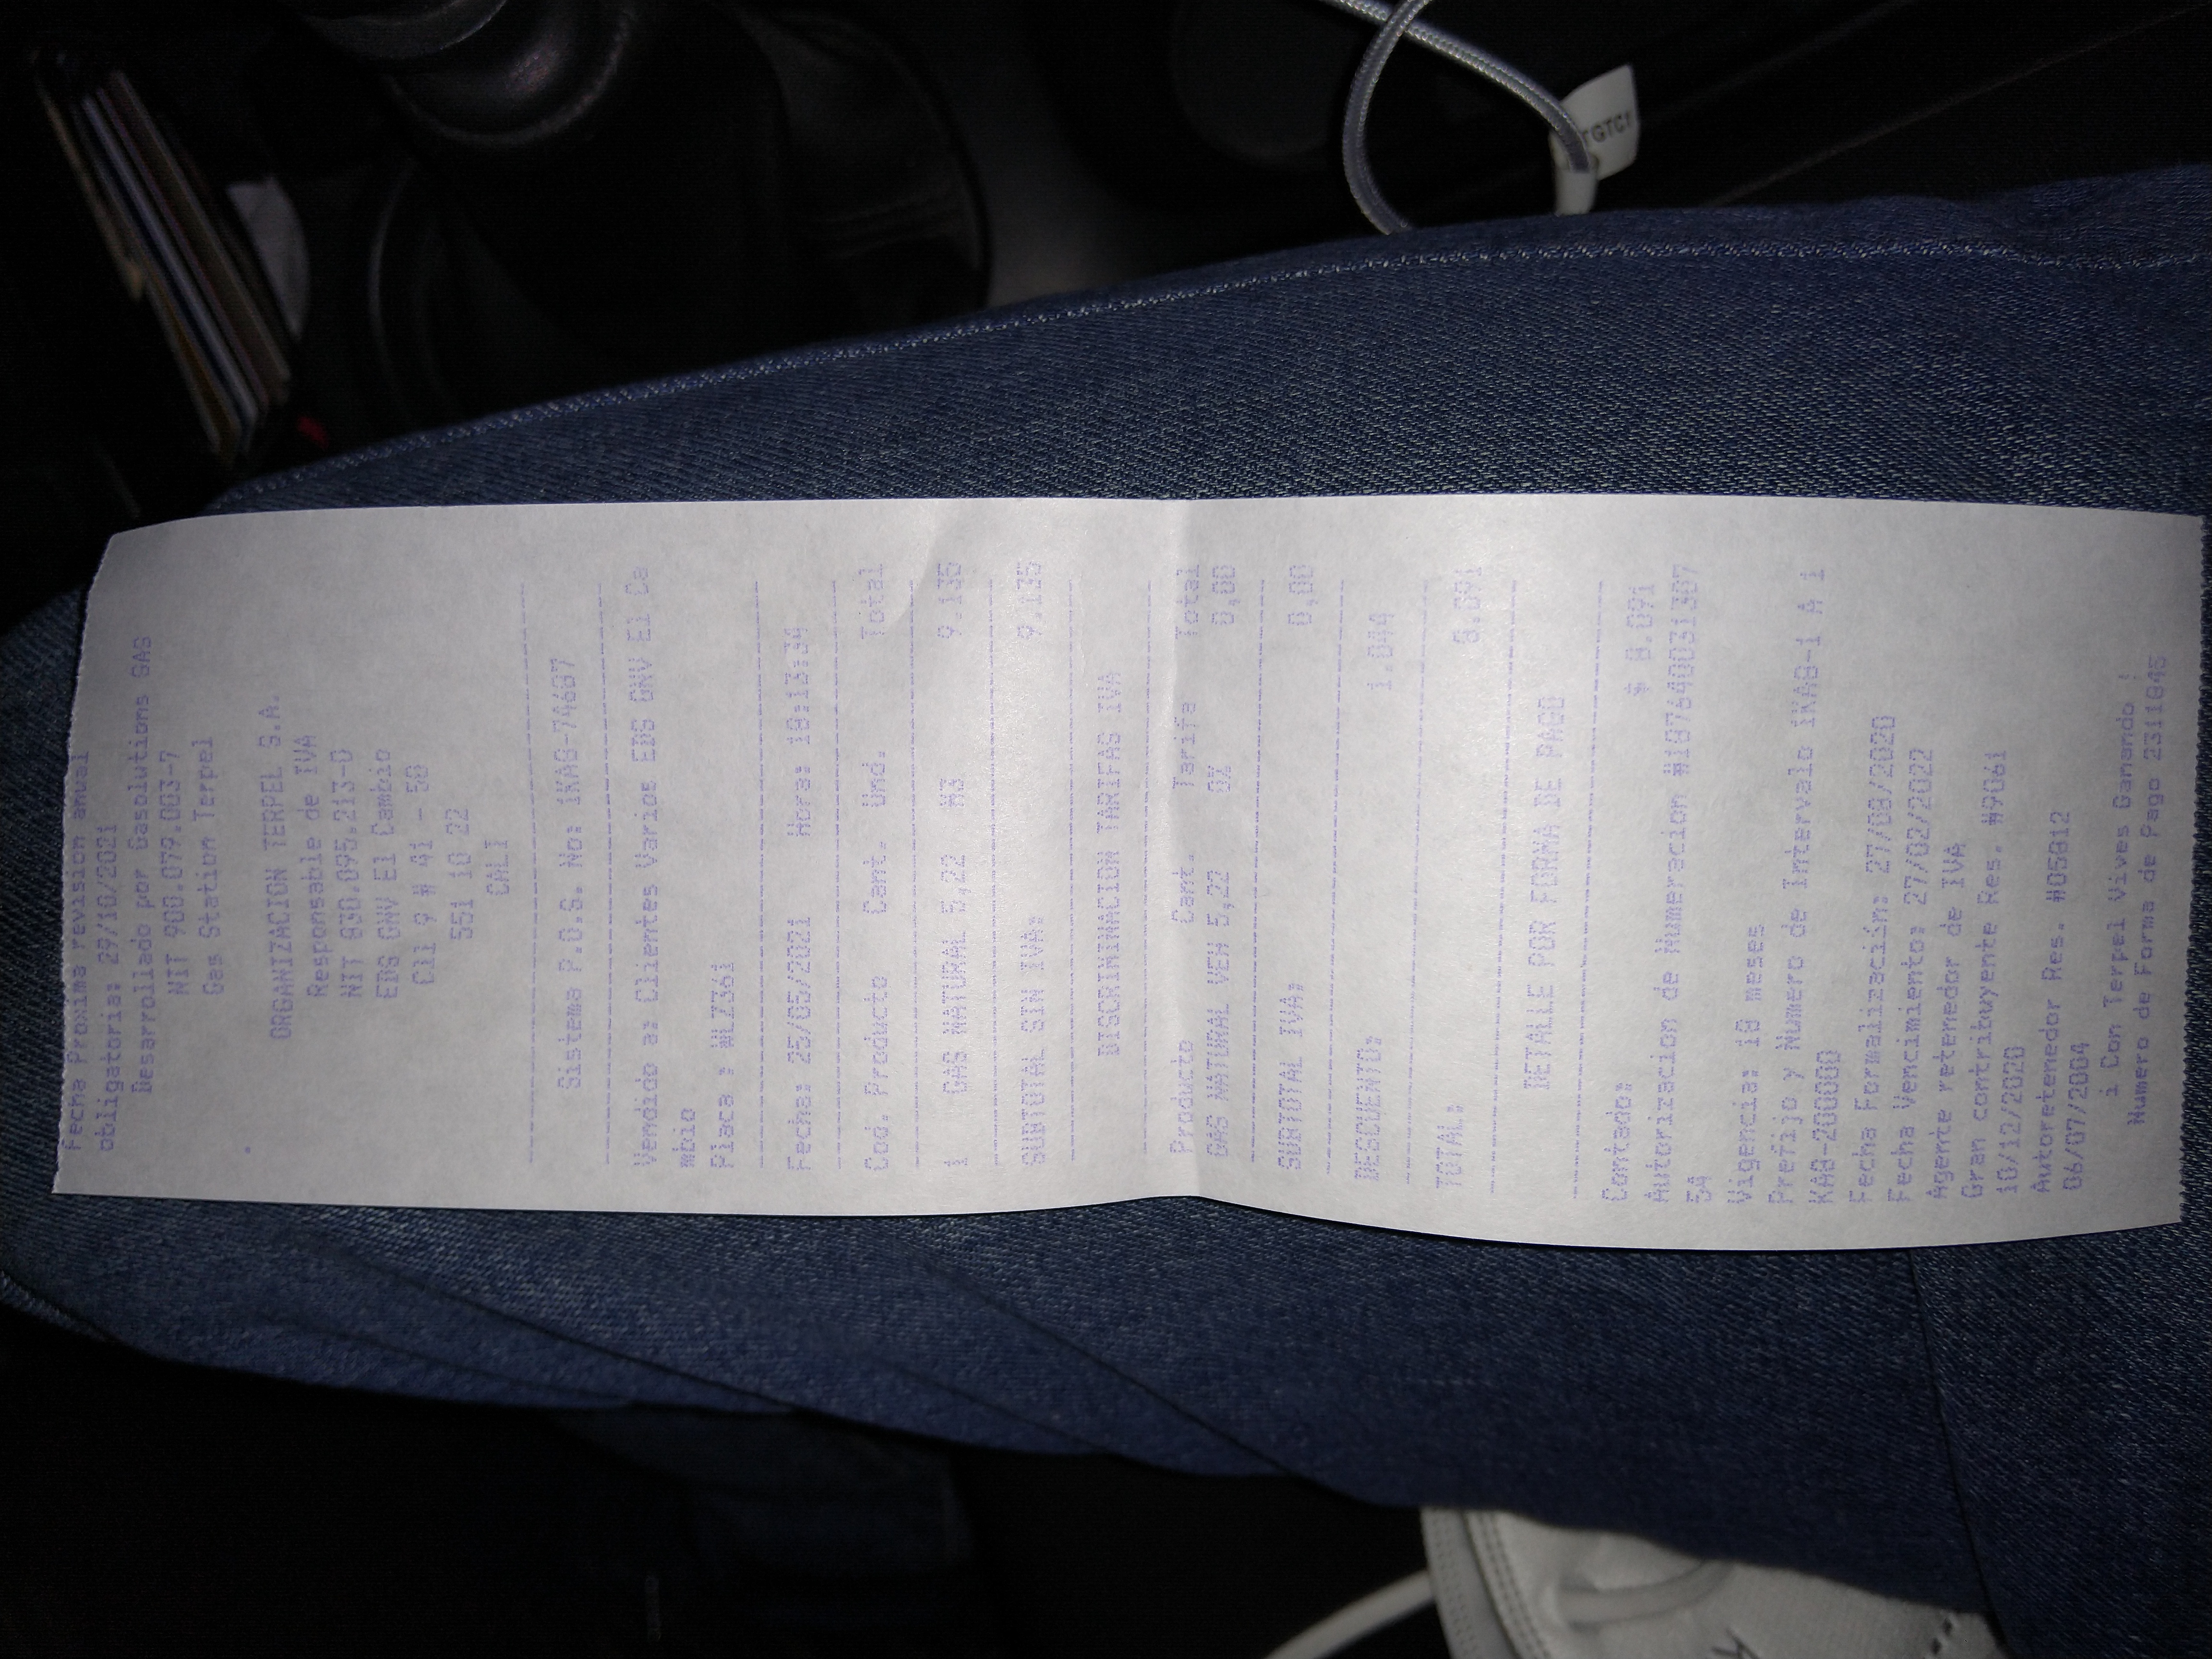 Fecha Proxima revision anual
obligatoria: 29/10/2021
Desarrollado por Gasolutions GAS
NIT 900.079.003-7
Gas Station Terpel
ORGANIZACION TERPEL S.A.
Responsable de IVA
NIT 830.095.213-0
EDS GNV El Cambio
Cll 9 # 41 - 50
551 10 22
CALI
Sistema P.O.S. No: 1KAB-74687
Vendido a: Clientes Varios EDS GNV El Ca
mbio
Placa : WLZ361
Fecha: 25/05/2021 Hora: 18:13:34
Cod. Producto Cant. Und. Total
1 GAS NATURAL 5,22 M3 9.135
SUBTOTAL SIN IVA: 9.135
DISCRIMINACION TARIFAS IVA
Producto Cant. Tarifa Total
GAS NATURAL VEH 5,22 0% 0,00
SUBTOTAL IVA: 0,00
DESCUENTO: 1.044
TOTAL: 8.091
DETALLE POR FORMA DE PAGO
Contado: $ 8.091
Autorizacion de Numeracion #1876400031307
5A
Vigencia: 18 meses
Prefijo y Numero de Intervalo 1KAB-1 A 1
KAB-200000
Fecha Formalización: 27/08/2020
Fecha Vencimiento: 27/02/2022
Agente retenedor de IVA
Gran contribuyente Res. #9061
10/12/2020
Autoretenedor Res. #05812
06/07/2004
¡ Con Terpel Vives Ganando !
Numero de Forma de Pago 2311845
TGTC1